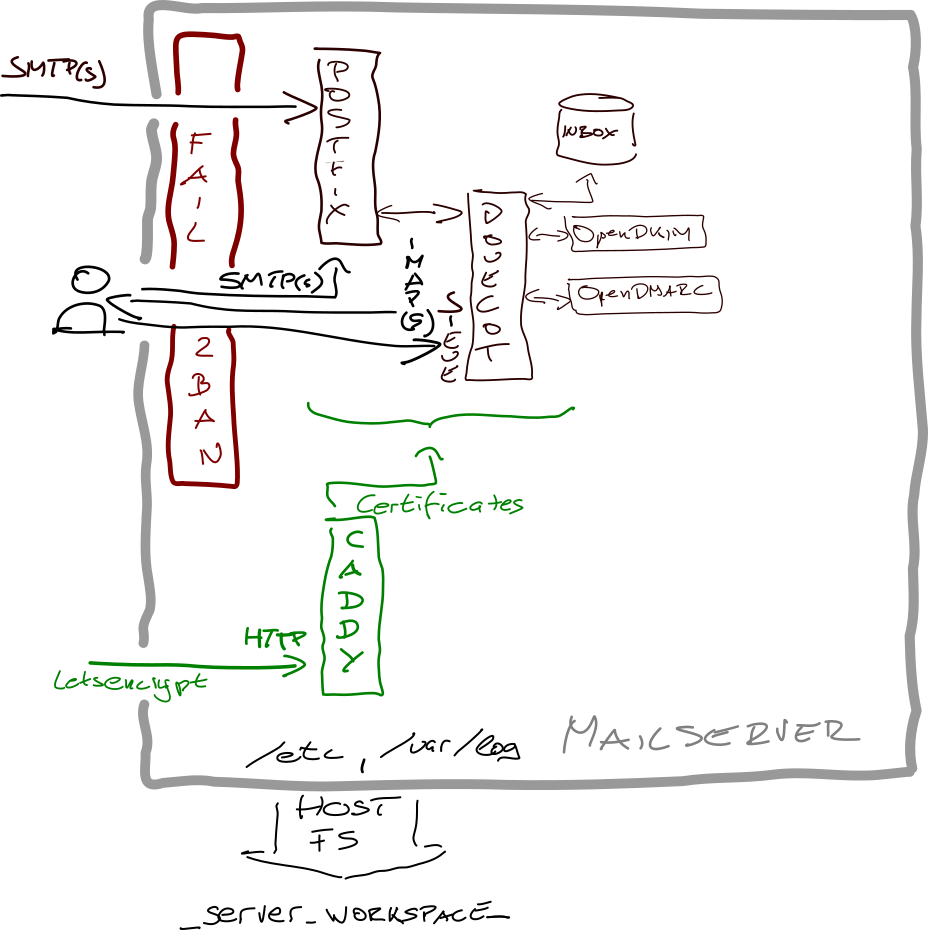 SMTP(S)
POSTFIX
INBOX
FAIL
2BAN
DOVECOT
OpenDKIM
OpenDMARC
SMTP(S)
IMAP(S)
SIEVE
Certificates
CADDY
HTTP
Letsencrypt
MAILSERVER
/etc, /var/log
HOST
FS
_server_WORKSPACE_